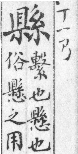 十一
縣
繫也懸也
俗懸之用